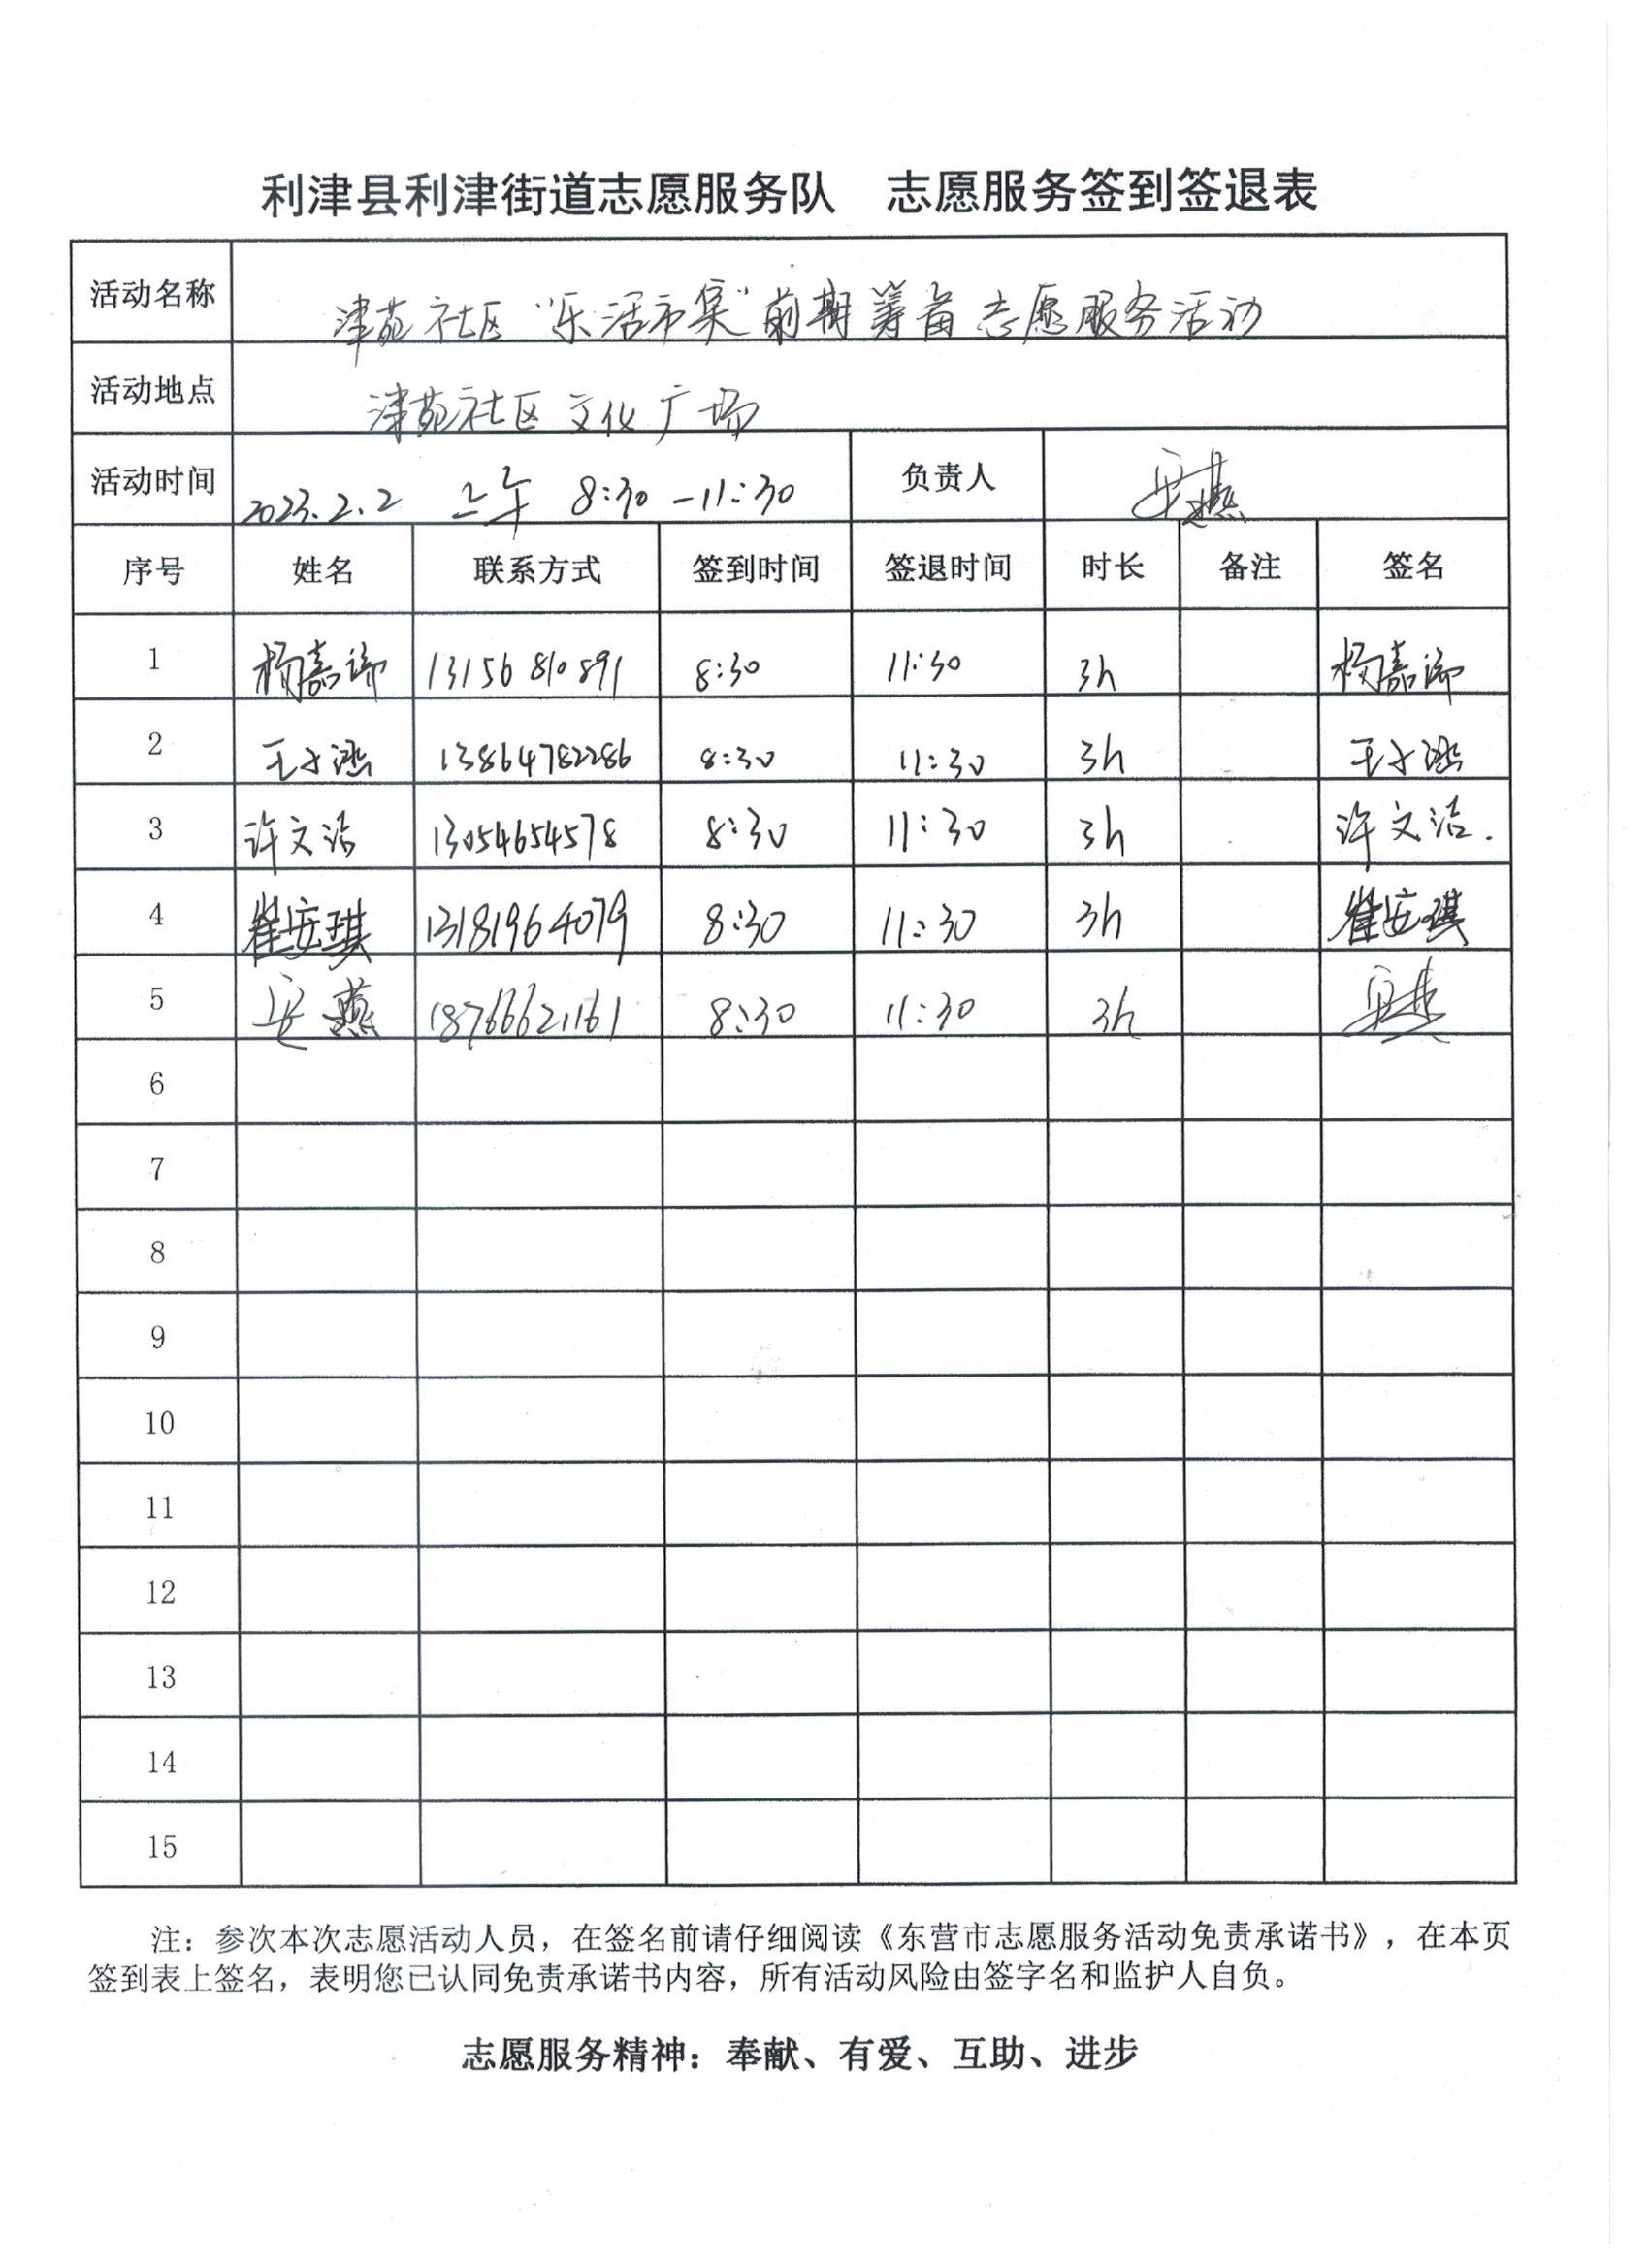 利津县利津街道志愿服务队 志愿服务签到签退表
活动名称 津苑社区“乐活市集”前期筹备志愿服务活动
活动地点 津苑社区文化广场
活动时间 2023.2.2 上午 8:30-11:30 负责人 安燕
序号 姓名 联系方式 签到时间 签退时间 时长 备注 签名
1 杨嘉 13156810891 8:30 11:30 3h 杨嘉
2 王子 13864782286 8:30 11:30 3h 王子
3 许文洁 13054654578 8:30 11:30 3h 许文洁.
4 崔安琪 13181964079 8:30 11:30 3h 崔安琪
5 安燕 18766621161 8:30 11:30 3h 安燕
6
7
8
9
10
11
12
13
14
15
注：参次本次志愿活动人员，在签名前请仔细阅读《东营市志愿服务活动免责承诺书》，在本页
签到表上签名，表明您已认同免责承诺书内容，所有活动风险由签字名和监护人自负。
志愿服务精神：奉献、有爱、互助、进步